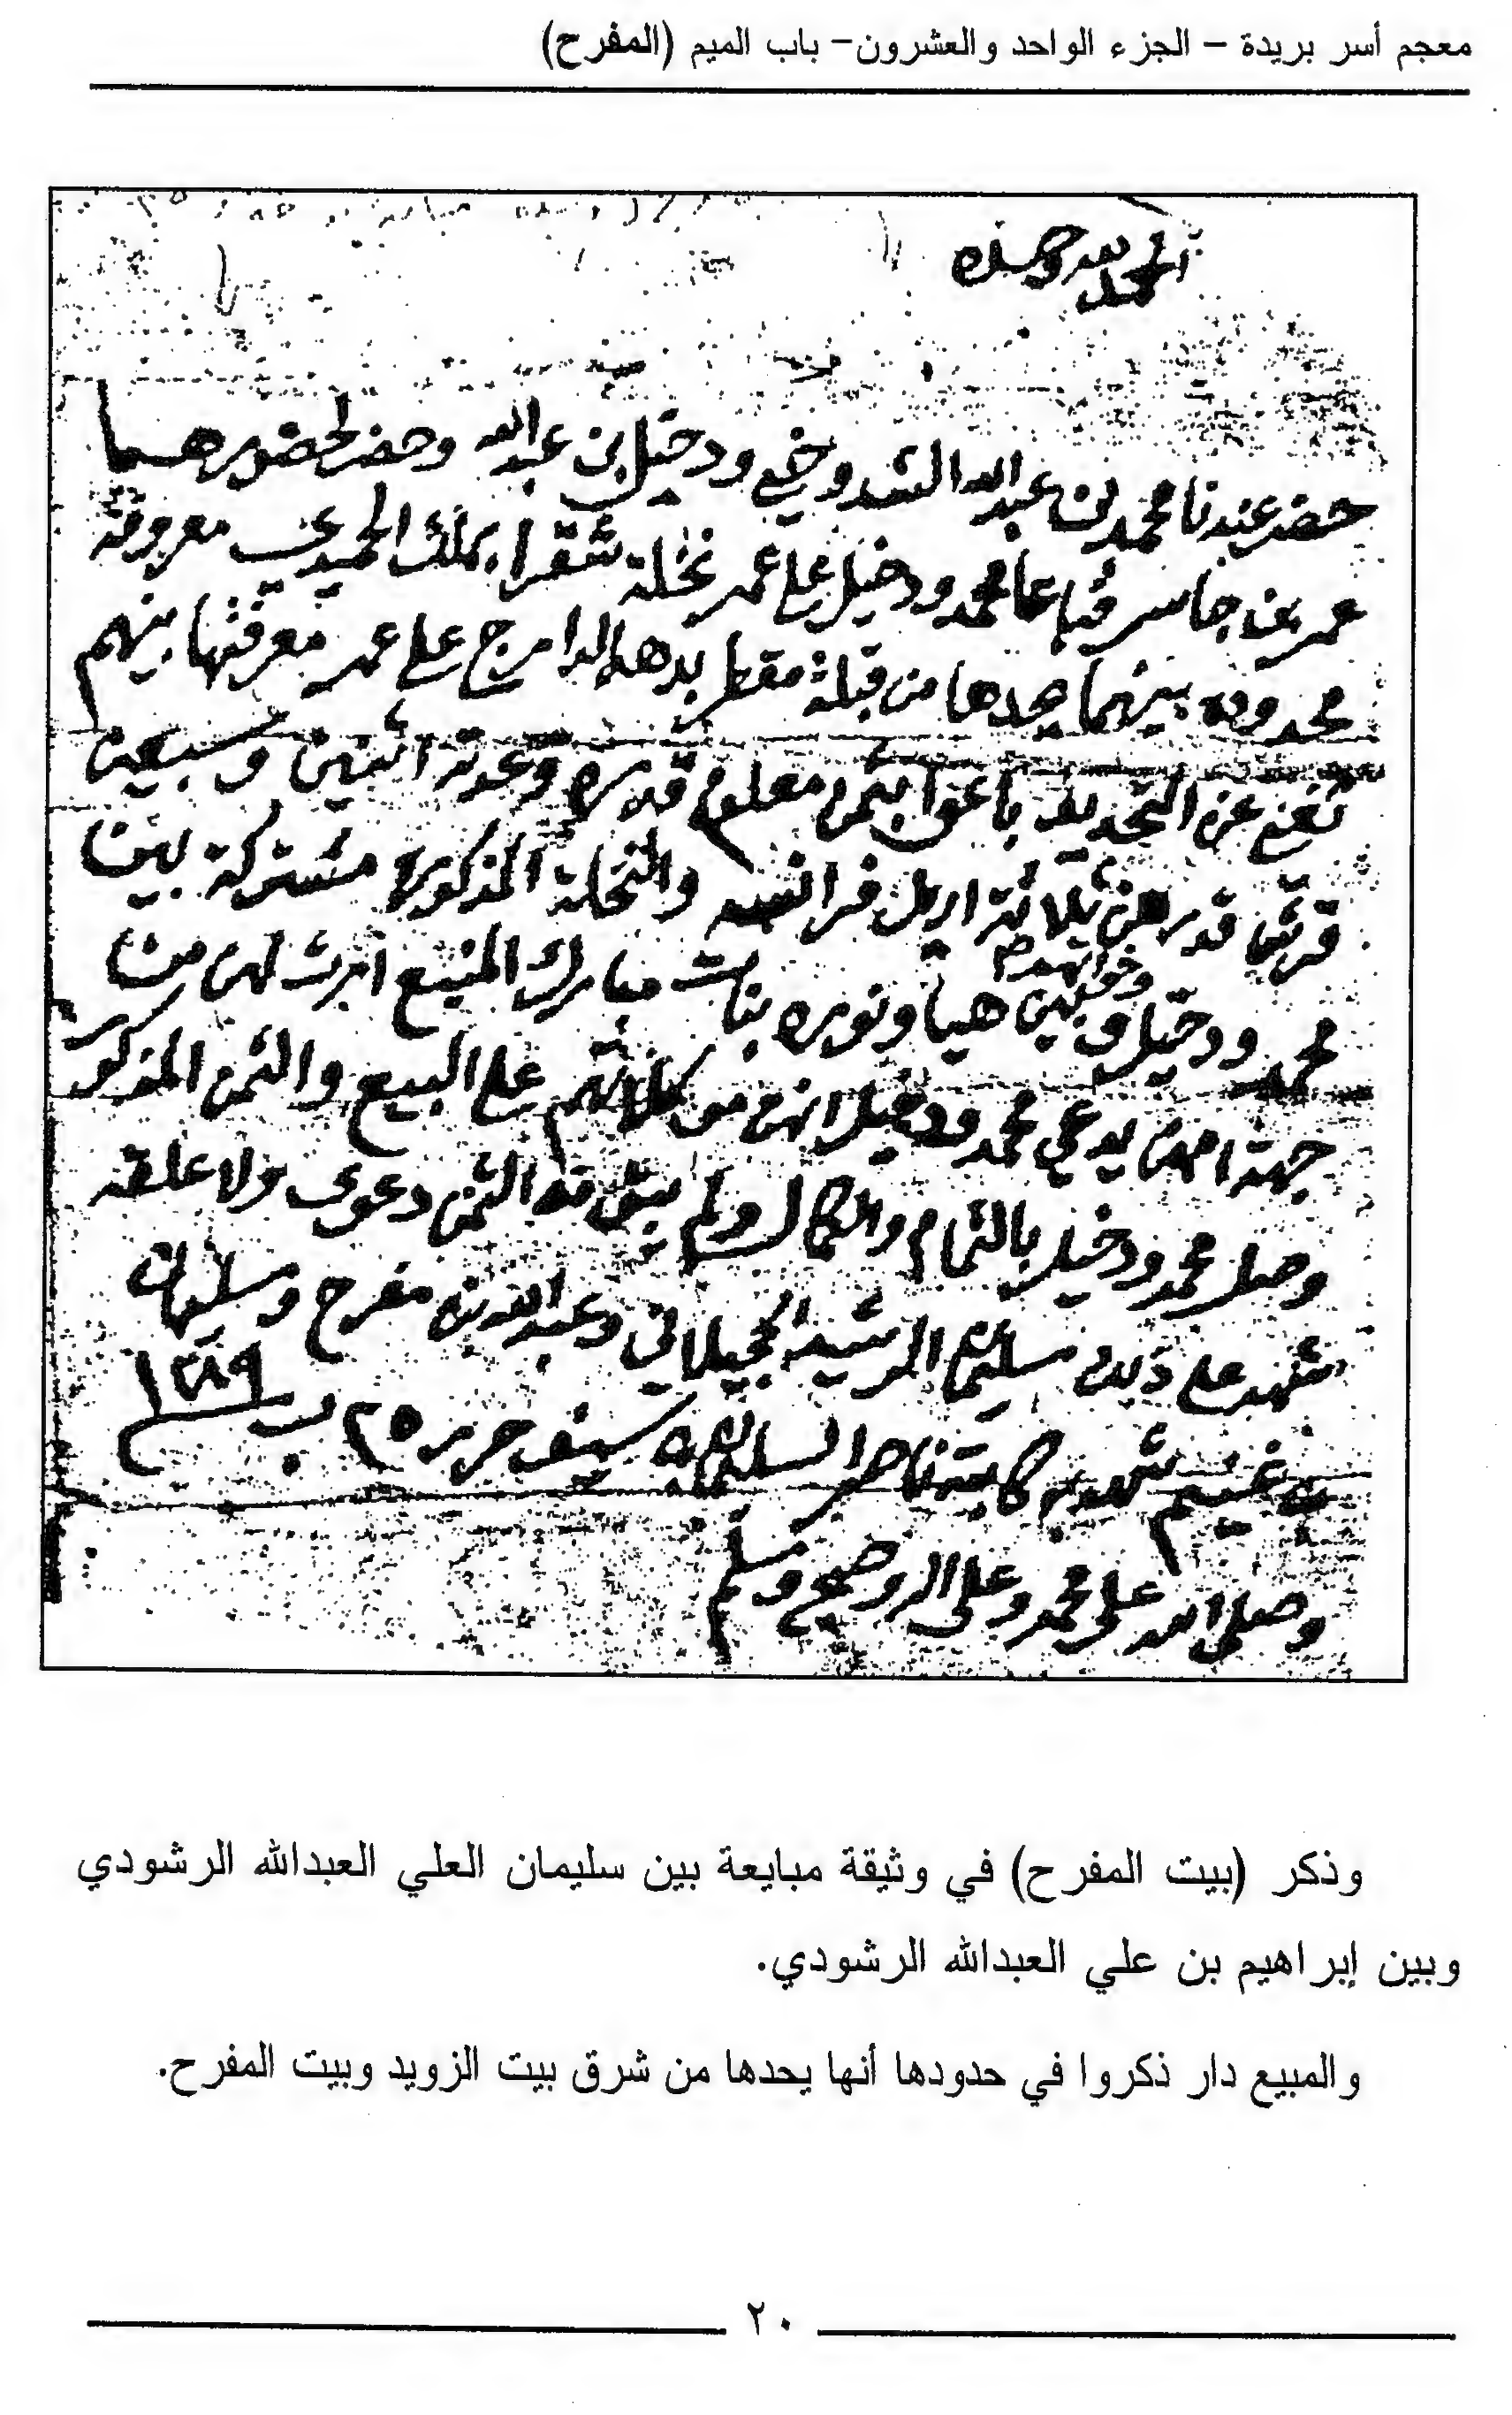 معجم أسر بريدة – الجزء الواحد والعشرون– باب الميم (المفرح)
الحمد لله وحده
حضر عندنا محمد بن عبدالله الشدوخي ودخيل بن عبدالله وحضر لحضورهما
عمر بن جاسر فباعا محمد ودخيل على عمر نخلة شقرا بملك الحميدي معروفة
محدوده بينهما يحدها من قبلة مقطر الدامرج على عمر معرفتها بينهم
تغني عن التحديد باعوا بثمن معلوم قدره وعدته اثنين وسبعين
قدرهن ثلاثة اريل فرانسه والنخلة المذكورة مشتركة بين
محمد ودخيل وخواتهم هيا ونوره بنات مبارك المنيع ارث لهن من
جهة امهن يدعي محمد ودخيل انهن موكلاتهم على البيع والثمن المذكور
وصل محمد ودخيل بالتمام والكمال ولم يبق من الثمن دعوى ولا علقه
شهد على ذلك سليمان الرشيد الحجيلاني وعبدالله بن مفرح وسليمان
بن غنيم شهد به كاتبه ناصر السليمان بن سيف حرر ٢٥ ب ١٢٨٩
وصلى الله على محمد وعلى اله وصحبه وسلم
وذكر (بيت المفرح) في وثيقة مبايعة بين سليمان العلي العبدالله الرشودي
وبين إبراهيم بن علي العبدالله الرشودي.
والمبيع دار ذكروا في حدودها أنها يحدها من شرق بيت الزويد وبيت المفرح.
٢٠